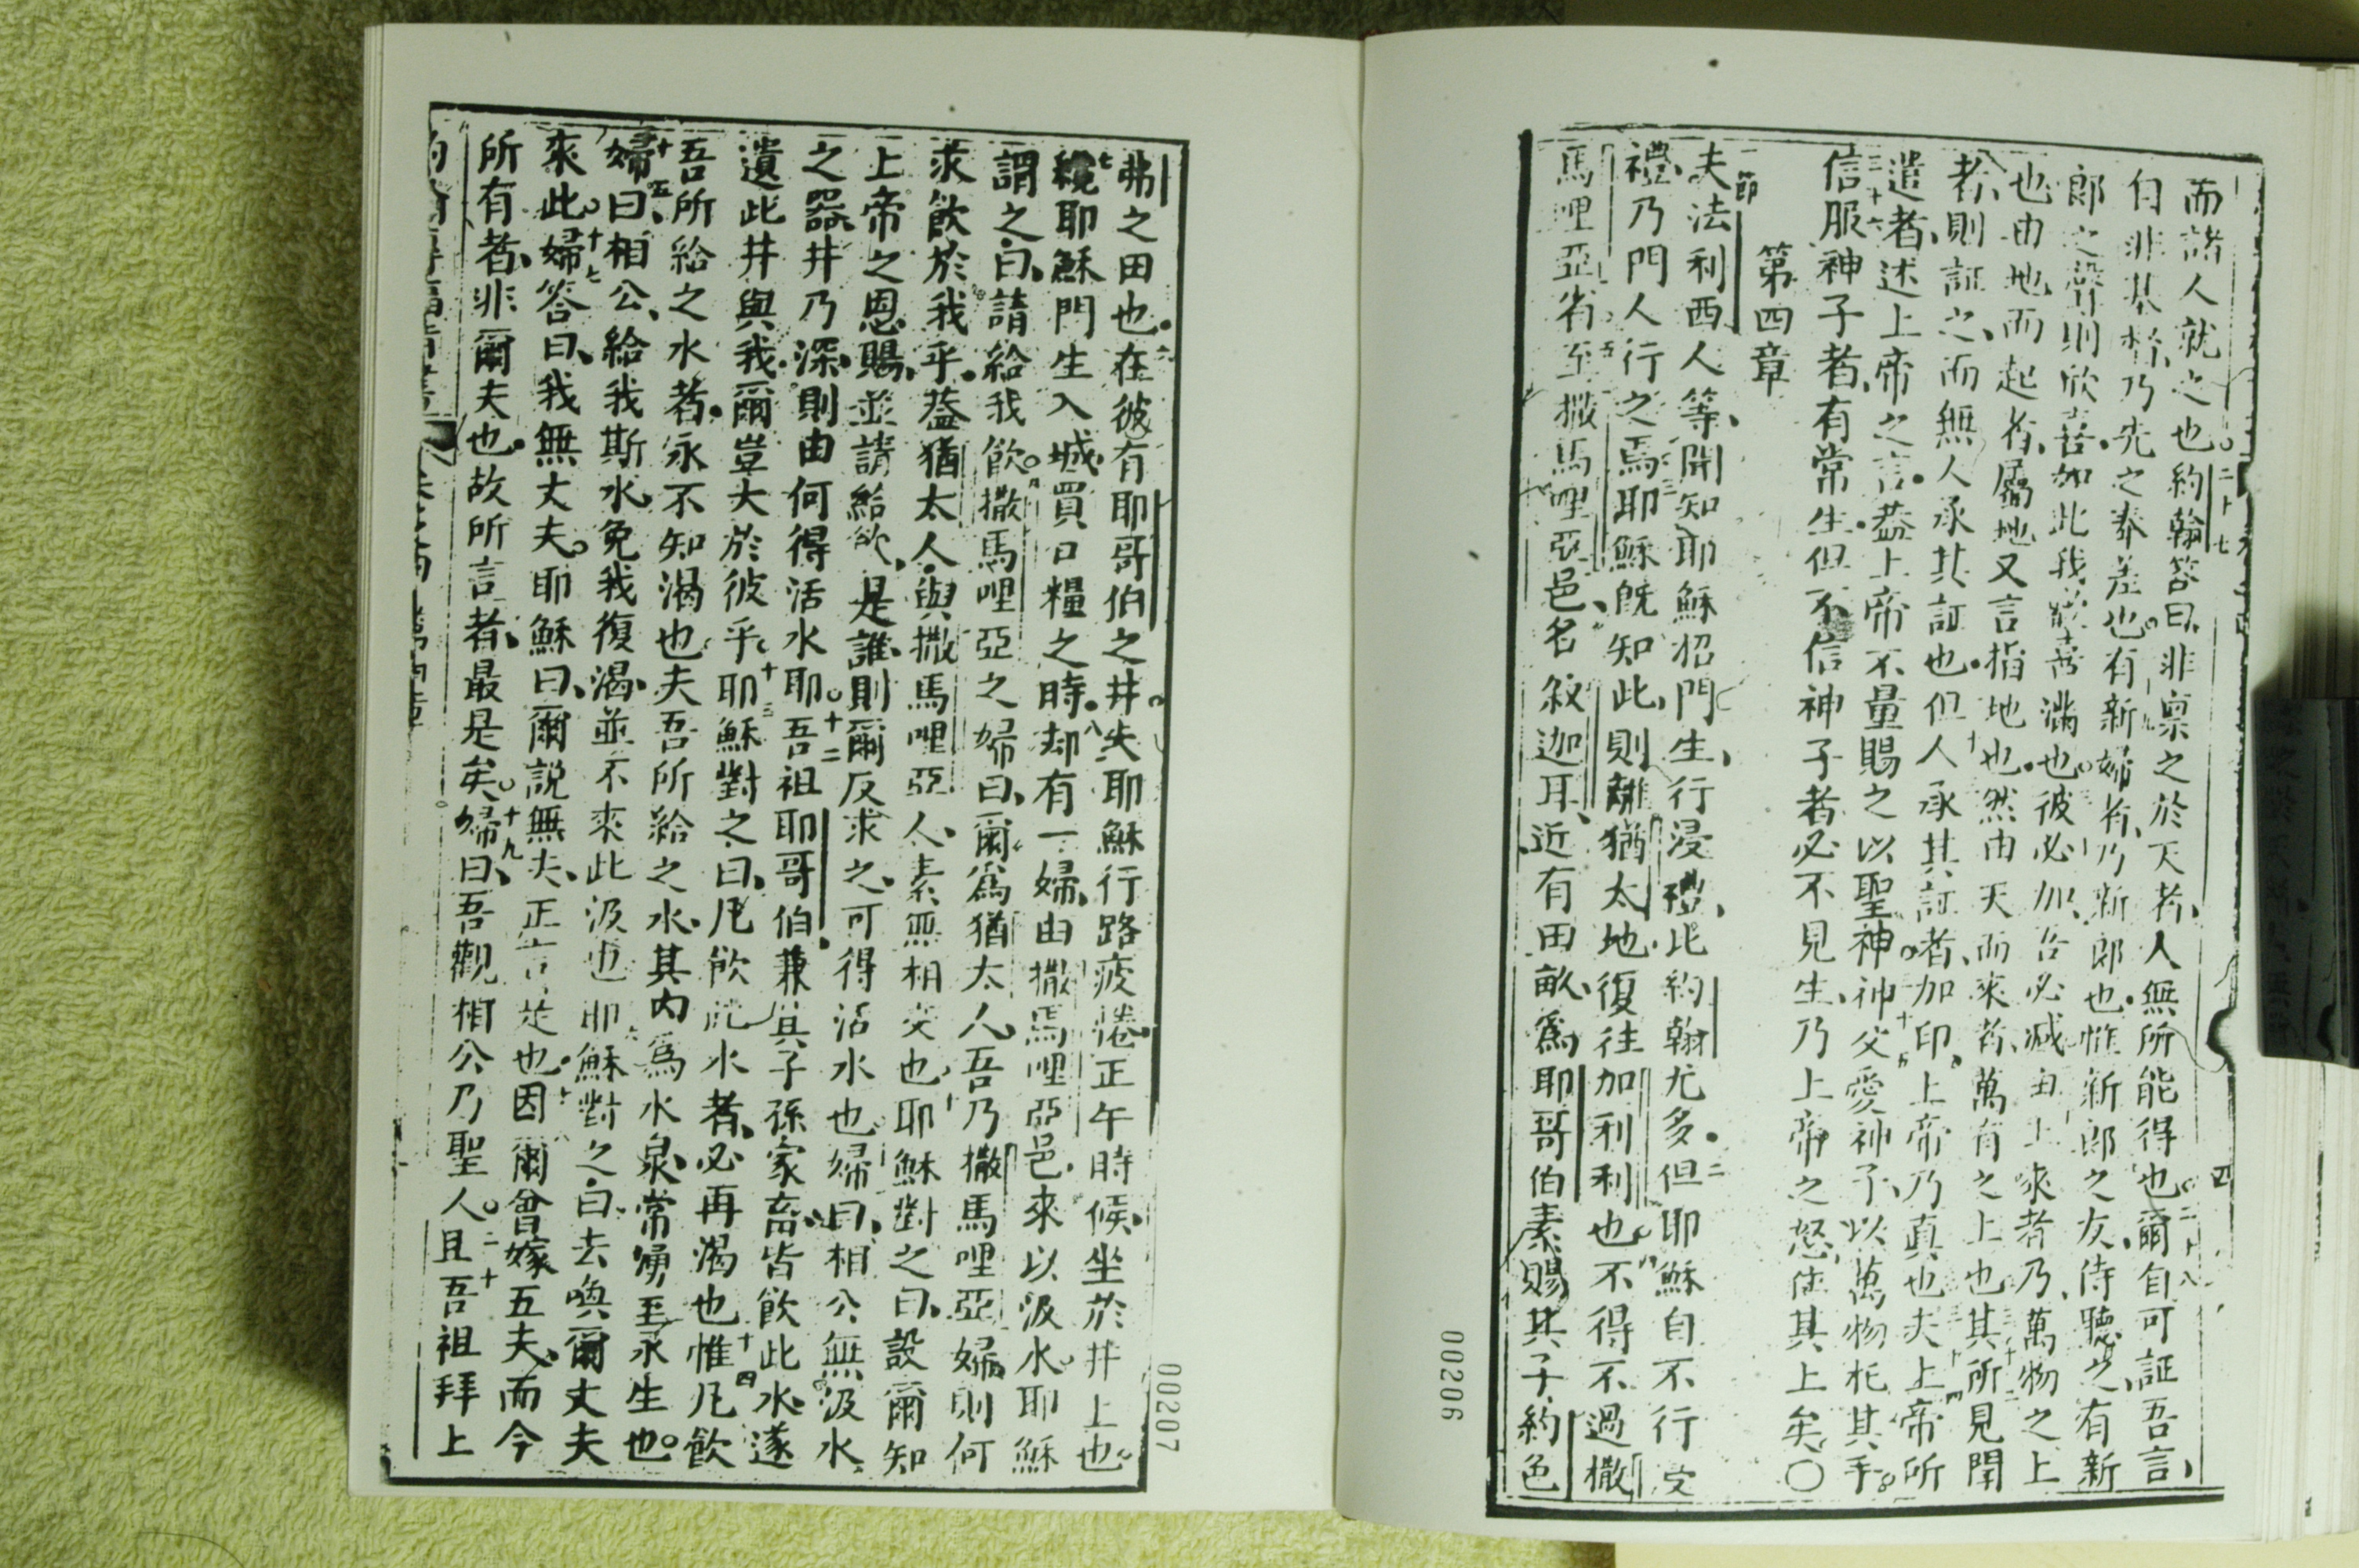 而諸人就之也○二十七約翰答曰、非禀之於天者、人無所能得也○二十八爾自可証吾言、
自非基督、乃先之奉差也。有新婦者、乃新郎也。惟新郎之友、侍聽之、有新
郎之聲則欣喜。如此我歡喜滿也。彼必加、吾必减。由上來者、乃萬物之上
也。由地而起者、屬地又言指地也。然由天而來者、萬有之上也。其所見聞
者、則証之、而無人承其証也。但人承其証者、加印、上帝乃真也。夫上帝所
遣者、述上帝之言。蓋上帝不量賜之以聖神。神父愛神子、以萬物托其手。
三十六信服神子者、有常生。但不信神子者、必不見生、乃上帝之怒、住其上矣。〇
第四章
節
夫法利西人等、聞知耶穌招門生、行浸禮、比約翰尤多。二但耶穌自不行
禮、乃門人行之焉。三耶穌既知此、則離猶太地、復往加利利也。四不得不過撒
馬哩亞省。五至撒馬哩亞邑、名叙迦耳、近有田畝、爲耶哥伯素賜其子、約色
00206
弗之田也。六在彼有耶哥伯之井。夫耶穌行路疲倦。正午時候、坐於井上也。
七纔耶穌門生入城、買口糧之時。八却有一婦、由撒馬哩亞邑、來以汲水。耶穌
謂之曰、請給我飲。九撒馬哩亞之婦曰、爾爲猶太人、吾乃撒馬哩亞婦、則何
求飲於我乎。蓋猶太人、與撒馬哩亞人、素無相交也。十耶穌對之曰、設爾知
上帝之恩賜、並請給飲、是誰、則爾反求之、可得活水也。婦曰、相公無汲水
之器、井乃深、則由何得活水耶。○十二吾祖耶哥伯、兼其子孫家畜、皆飲此水、遂
遺此井與我、爾豈大於彼乎。十三耶穌對之曰、凡飲此水者、必再渴也。十四惟凡飲
吾所給之水者、永不知渴也。夫吾所給之水、其內爲水泉、常湧至永生也。
十五婦曰、相公、給我斯水、免我復渴、並不來此汲也。耶穌對之曰、去喚爾丈夫
來此。○十七婦答曰、我無丈夫。耶穌曰、爾說無夫、正言是也。十八因爾曾嫁五夫、而今
所有者、非爾夫也。故所言者、最是矣。○十九婦曰、吾觀相公、乃聖人。○二十且吾祖拜上
00207